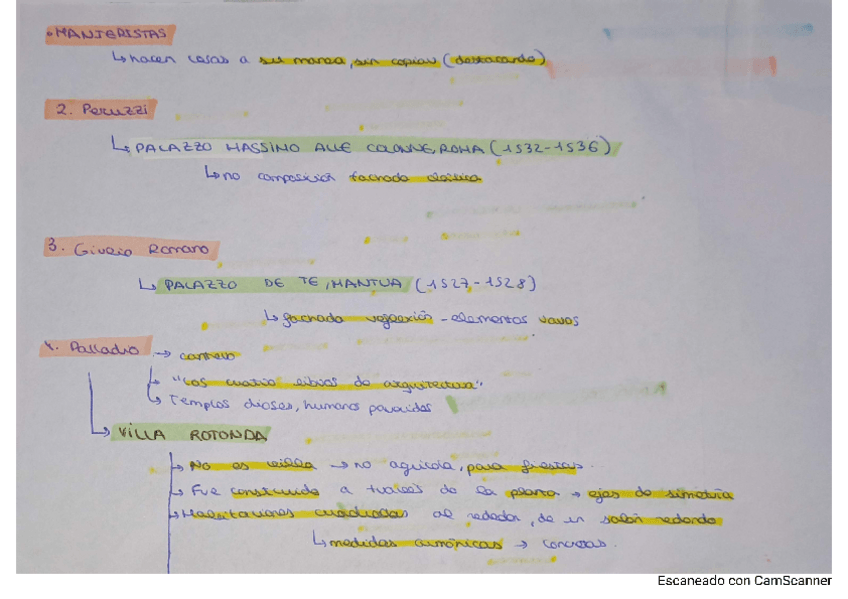 • MANIERISTAS
↳ hacen cosas a su manera, sin copiar (destacando)
2. Peruzzi
↳ PALAZZO MASSINO ALLE COLONNE, ROMA (1532-1536)
↳ no composición fachada clásica
3. Giulio Romano
↳ PALAZZO DE TE, MANTUA (1527-1528)
↳ fachada reflexión - elementos raros
4. Palladio → cantero
↳ "Los cuatro libros de arquitectura"
↳ Templos dioses, humanos
↳ VILLA ROTONDA
↳ No es villa → no agrícola, para fiestas.
↳ Fue construida a través de la planta → ejes de simetría
↳ Habitaciones cuadradas al rededor, de un salón redondo
↳ medidas armónicas → concretas.
Escaneado con CamScanner